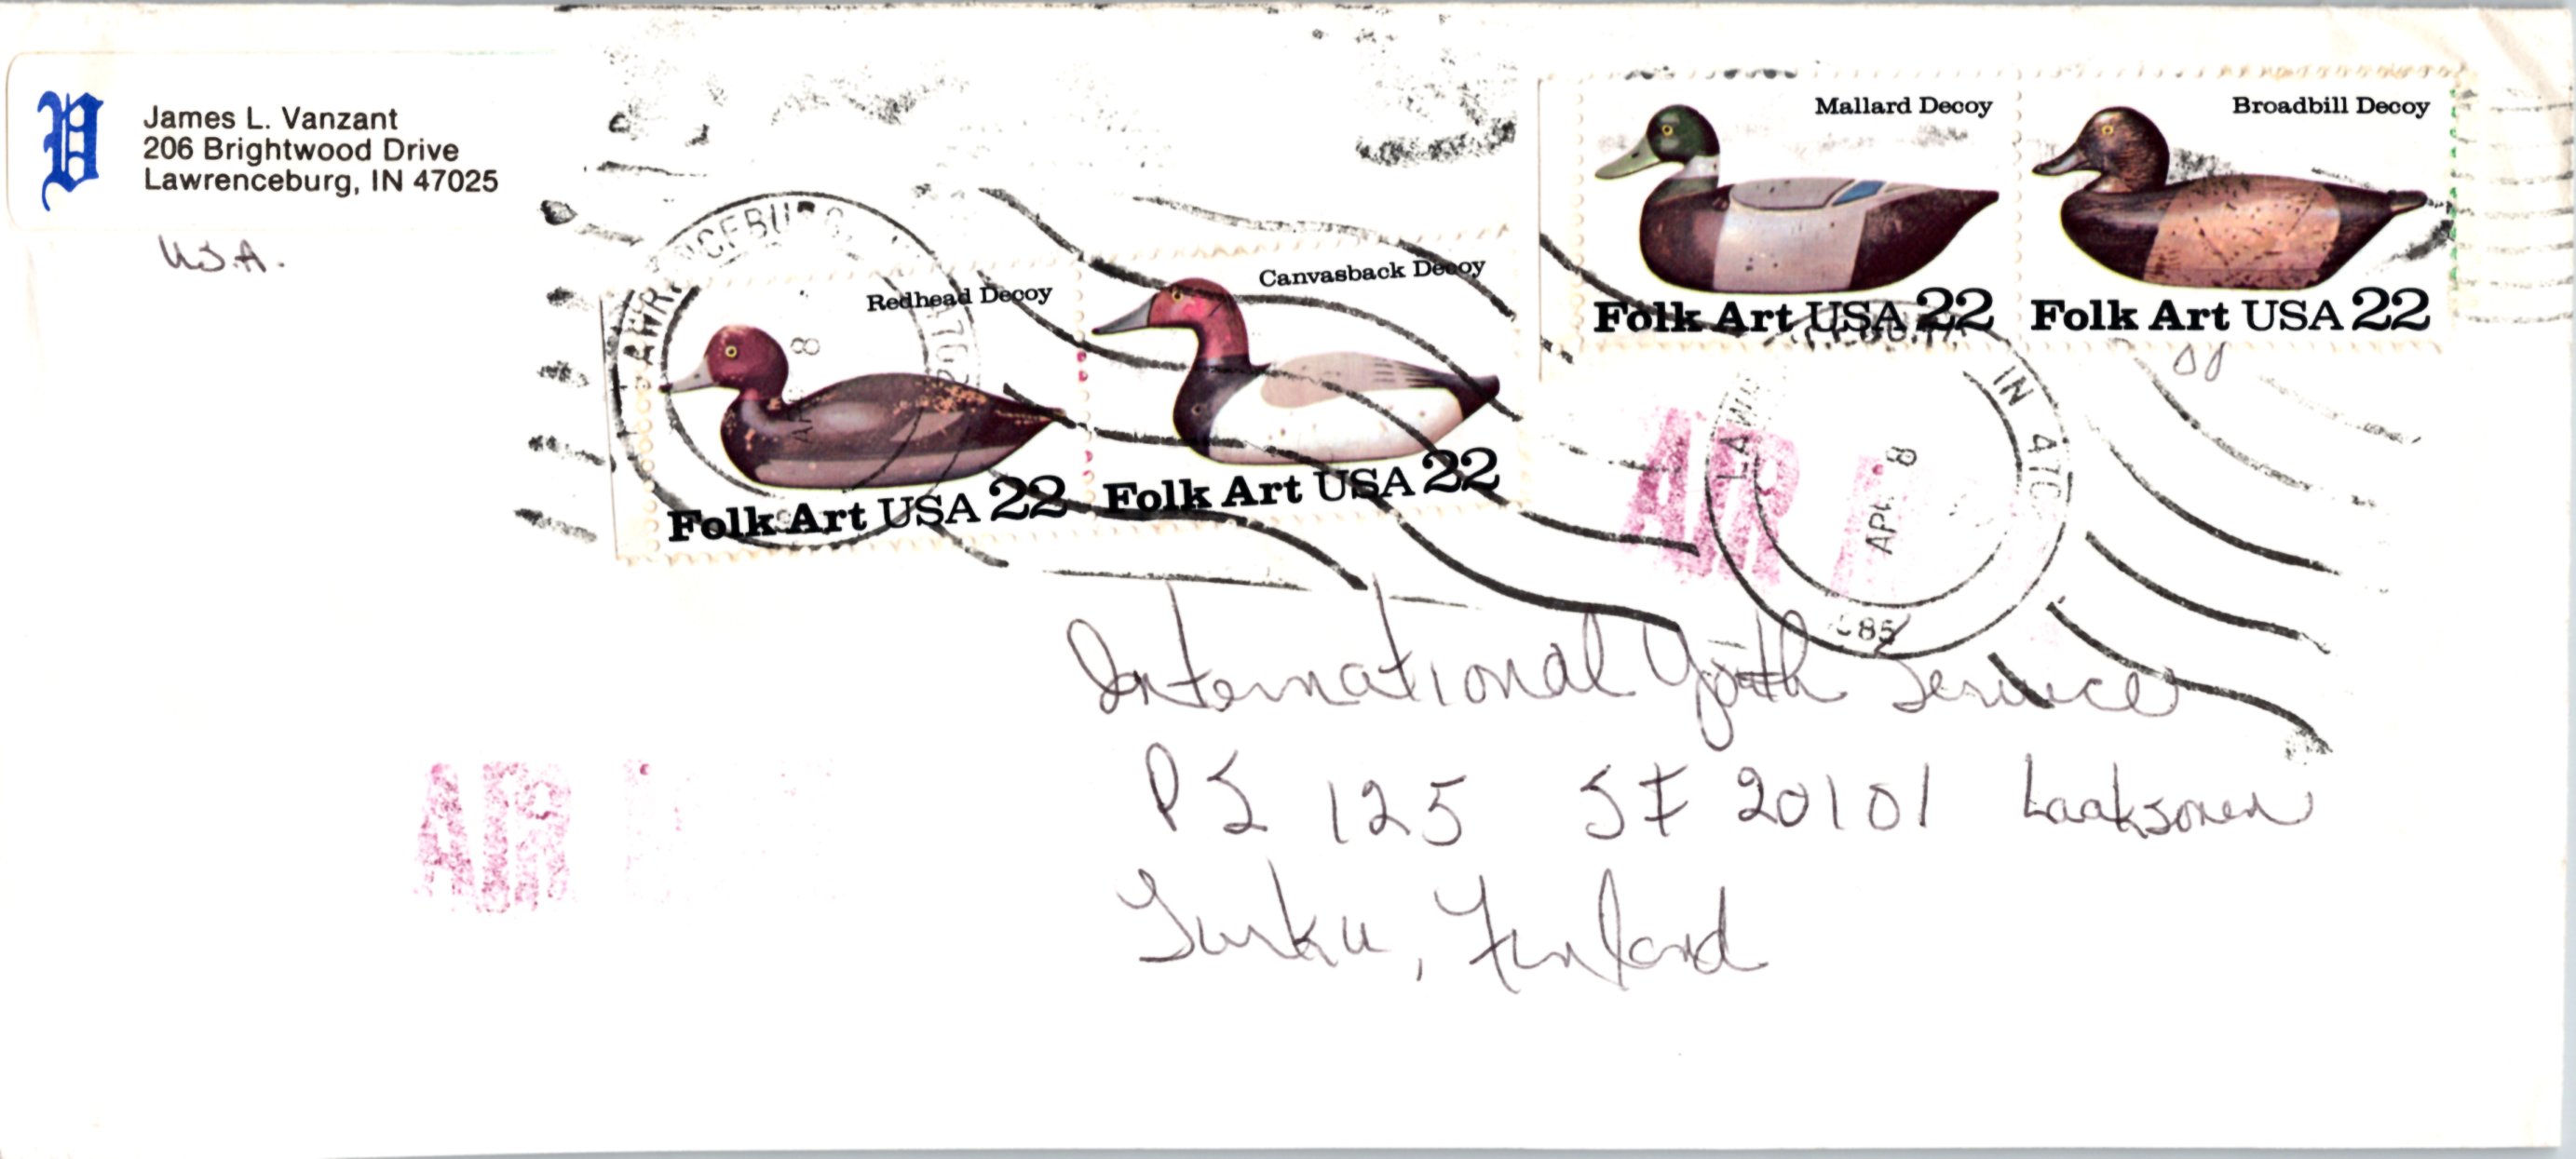 V
James L. Vanzant
206 Brightwood Drive
Lawrenceburg, IN 47025
U.S.A.
Mallard Decoy
Folk Art USA 22
Broadbill Decoy
Folk Art USA 22
Redhead Decoy
Folk Art USA 22
Canvasback Decoy
Folk Art USA 22
8
IN 470
APR 8
1985
AIR
International Youth Service
PS 125 SF 20101 Laaksonen
Turku, Finland
AIR